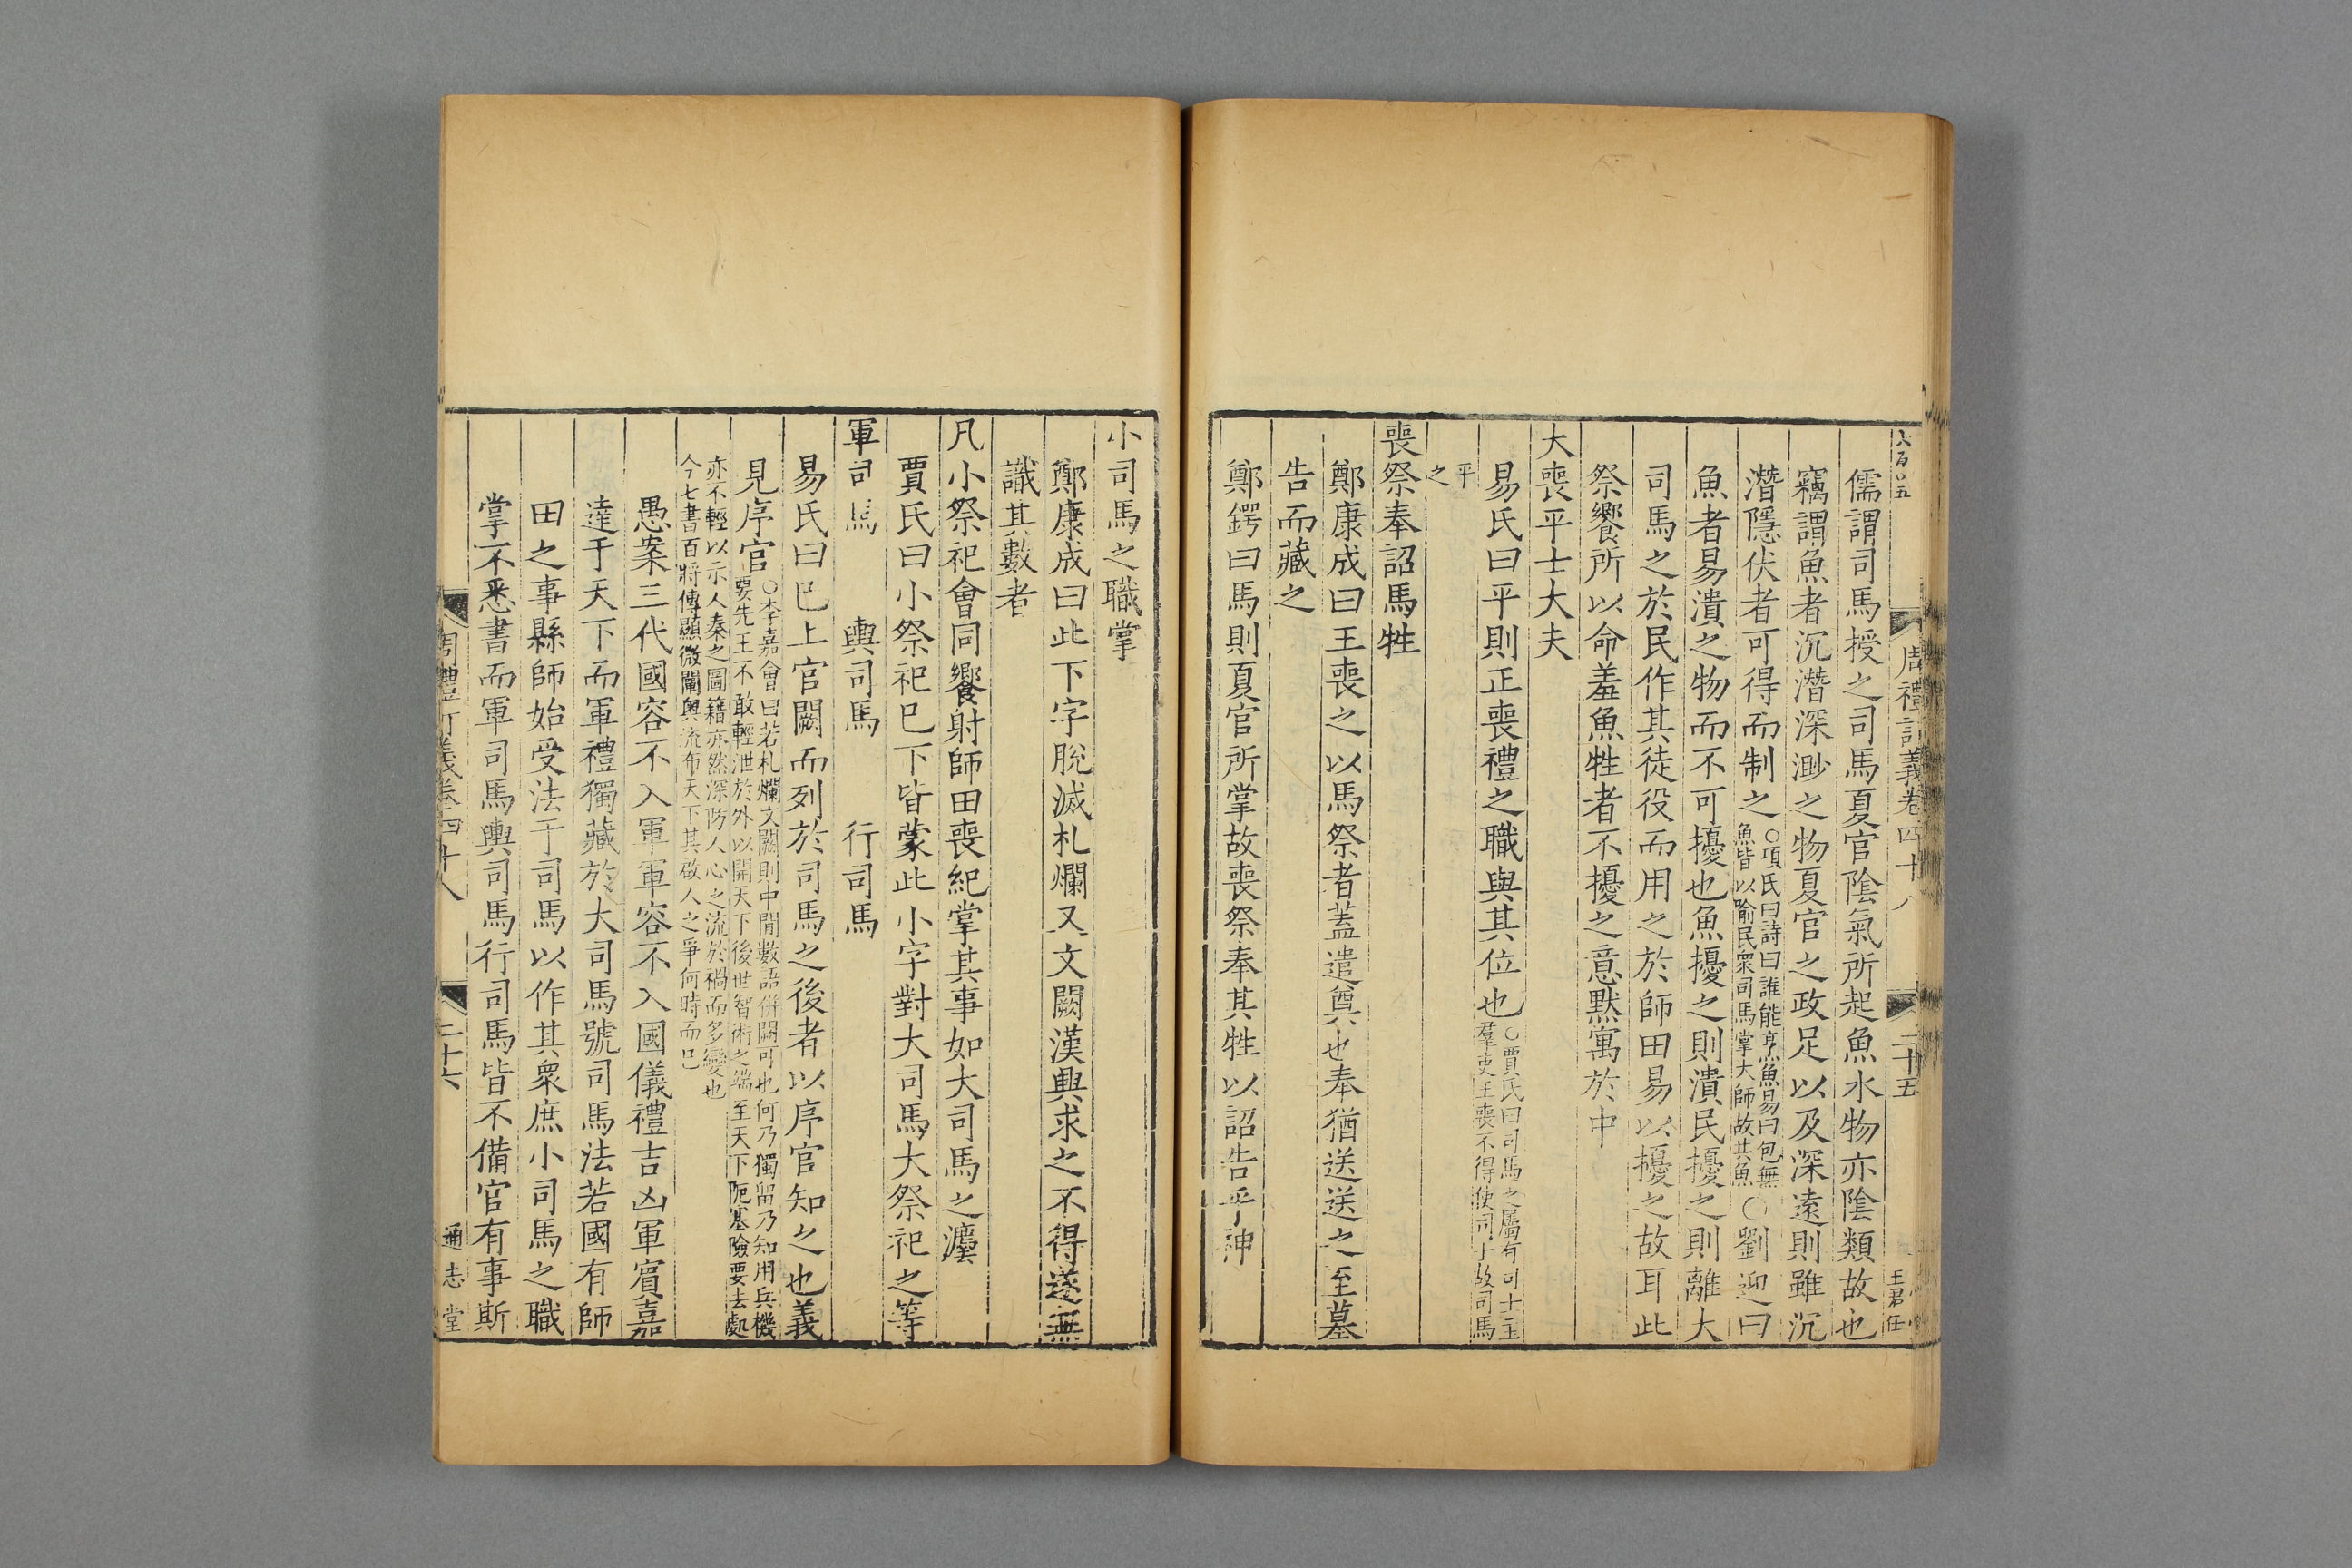 六百〇五
周禮訂義卷四十八
二十五
王君任
儒謂司馬授之司馬夏官陰氣所起魚水物亦陰類故也
竊謂魚者沉潛深渺之物夏官之政足以及深遠則雖沉
潛隱伏者可得而制之○項氏曰詩曰誰能亨魚易曰包無
魚皆以喻民衆司馬掌大師故其魚○劉迎曰
魚者易潰之物而不可擾也魚擾之則潰民擾之則離大
司馬之於民作其徒役而用之於師田易以擾之故耳此
祭饗所以命羞魚牲者不擾之意默寓於中
大喪平士大夫
易氏曰平則正喪禮之職與其位也○賈氏曰司馬之屬有司士主
羣吏王喪不得使司士故司馬
平
之
喪祭奉詔馬牲
鄭康成曰王喪之以馬祭者蓋遣奠也奉猶送送之至墓
告而藏之
鄭鍔曰馬則夏官所掌故喪祭奉其牲以詔告乎神
小司馬之職掌
鄭康成曰此下字脫滅札爛又文闕漢興求之不得遂無
識其數者
凡小祭祀會同饗射師田喪紀掌其事如大司馬之灋
賈氏曰小祭祀已下皆蒙此小字對大司馬大祭祀之等
軍司馬　輿司馬　行司馬
易氏曰已上官闕而列於司馬之後者以序官知之也義
見序官○李嘉會曰若札爛文闕則中間數語併闕可也何乃獨留乃知用兵機
要先王不敢輕泄於外以開天下後世智術之端至天下阨塞險要去處
亦不輕以示人秦之圖籍亦然深防人心之流於禍而多變也
今七書百將傳顯微闡輿流布天下其啟人之爭何時而已
愚案三代國容不入軍軍容不入國儀禮吉凶軍賓嘉
達于天下而軍禮獨藏於大司馬號司馬法若國有師
田之事縣師始受法于司馬以作其衆庶小司馬之職
掌不悉書而軍司馬輿司馬行司馬皆不備官有事斯
周禮訂義卷四十八
二十六
通志堂